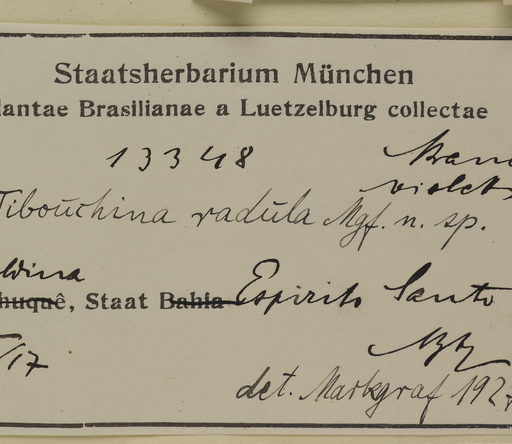 Staatsherbarium München
lantae Brasilianae a Luetzelburg collectae
13348
violet
Tibouchina radula Mgf. n. sp.
huquê, Staat Bahia Espirito Santo
/17
det. Markgraf 192